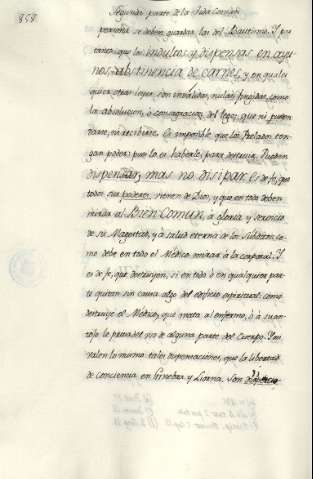 858.
Segunda parte de la Vida
primero se deben guardar las del Bautismo. Y por
tanto que los indultos, y dispensas en ayu
nos, y abstinencia de carnes, y en quales
quiera otras leyes, son invalidas, nulas, fingidas, como
la absolucion, ó consagracion del lego; que ni pueden
darse, ni recibirse. Es imposible que los Prelados ten
gan poder para destruir. Pueden
dispensar, mas no disipar. Es de fe, que
todos sus poderes tienen de Dios, y que en todo deben
mirar al Bien Comun, á gloria, y servicio
de su Magestad, y á salud eterna de los Subditos, co
mo debe en todo el Medico mirar á la corporal. Y
es de fe, que destruyen, si en todo ó en qualquiera par
te quitan sin causa algo del edificio espiritual: como
destruye el Medico, que mata al enfermo, ó á su an
tojo le priva del uso de alguna parte del Cuerpo. Y
valen lo mismo tales dispensaciones, que la libertad
de conciencia en Ginebra y Son